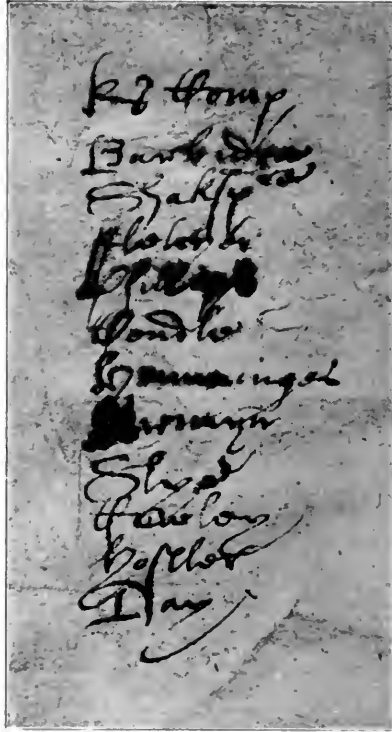 Ks Comp
Burbidge
Shakspeare
Fletcher
Phillips
Condle
Hemminges
Armyn
Slye
Cowley
Hostler
Day